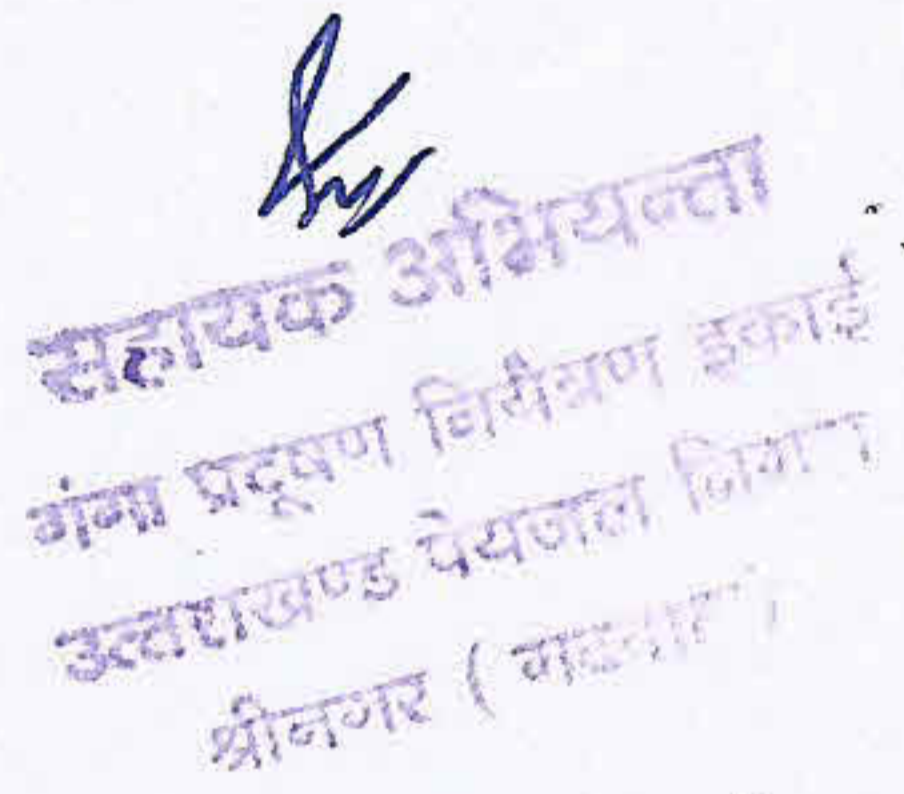 सहायक अभियन्ता
गंगा प्रदूषण नियंत्रण इकाई
उत्तराखण्ड पेयजल निगम
श्रीनगर (